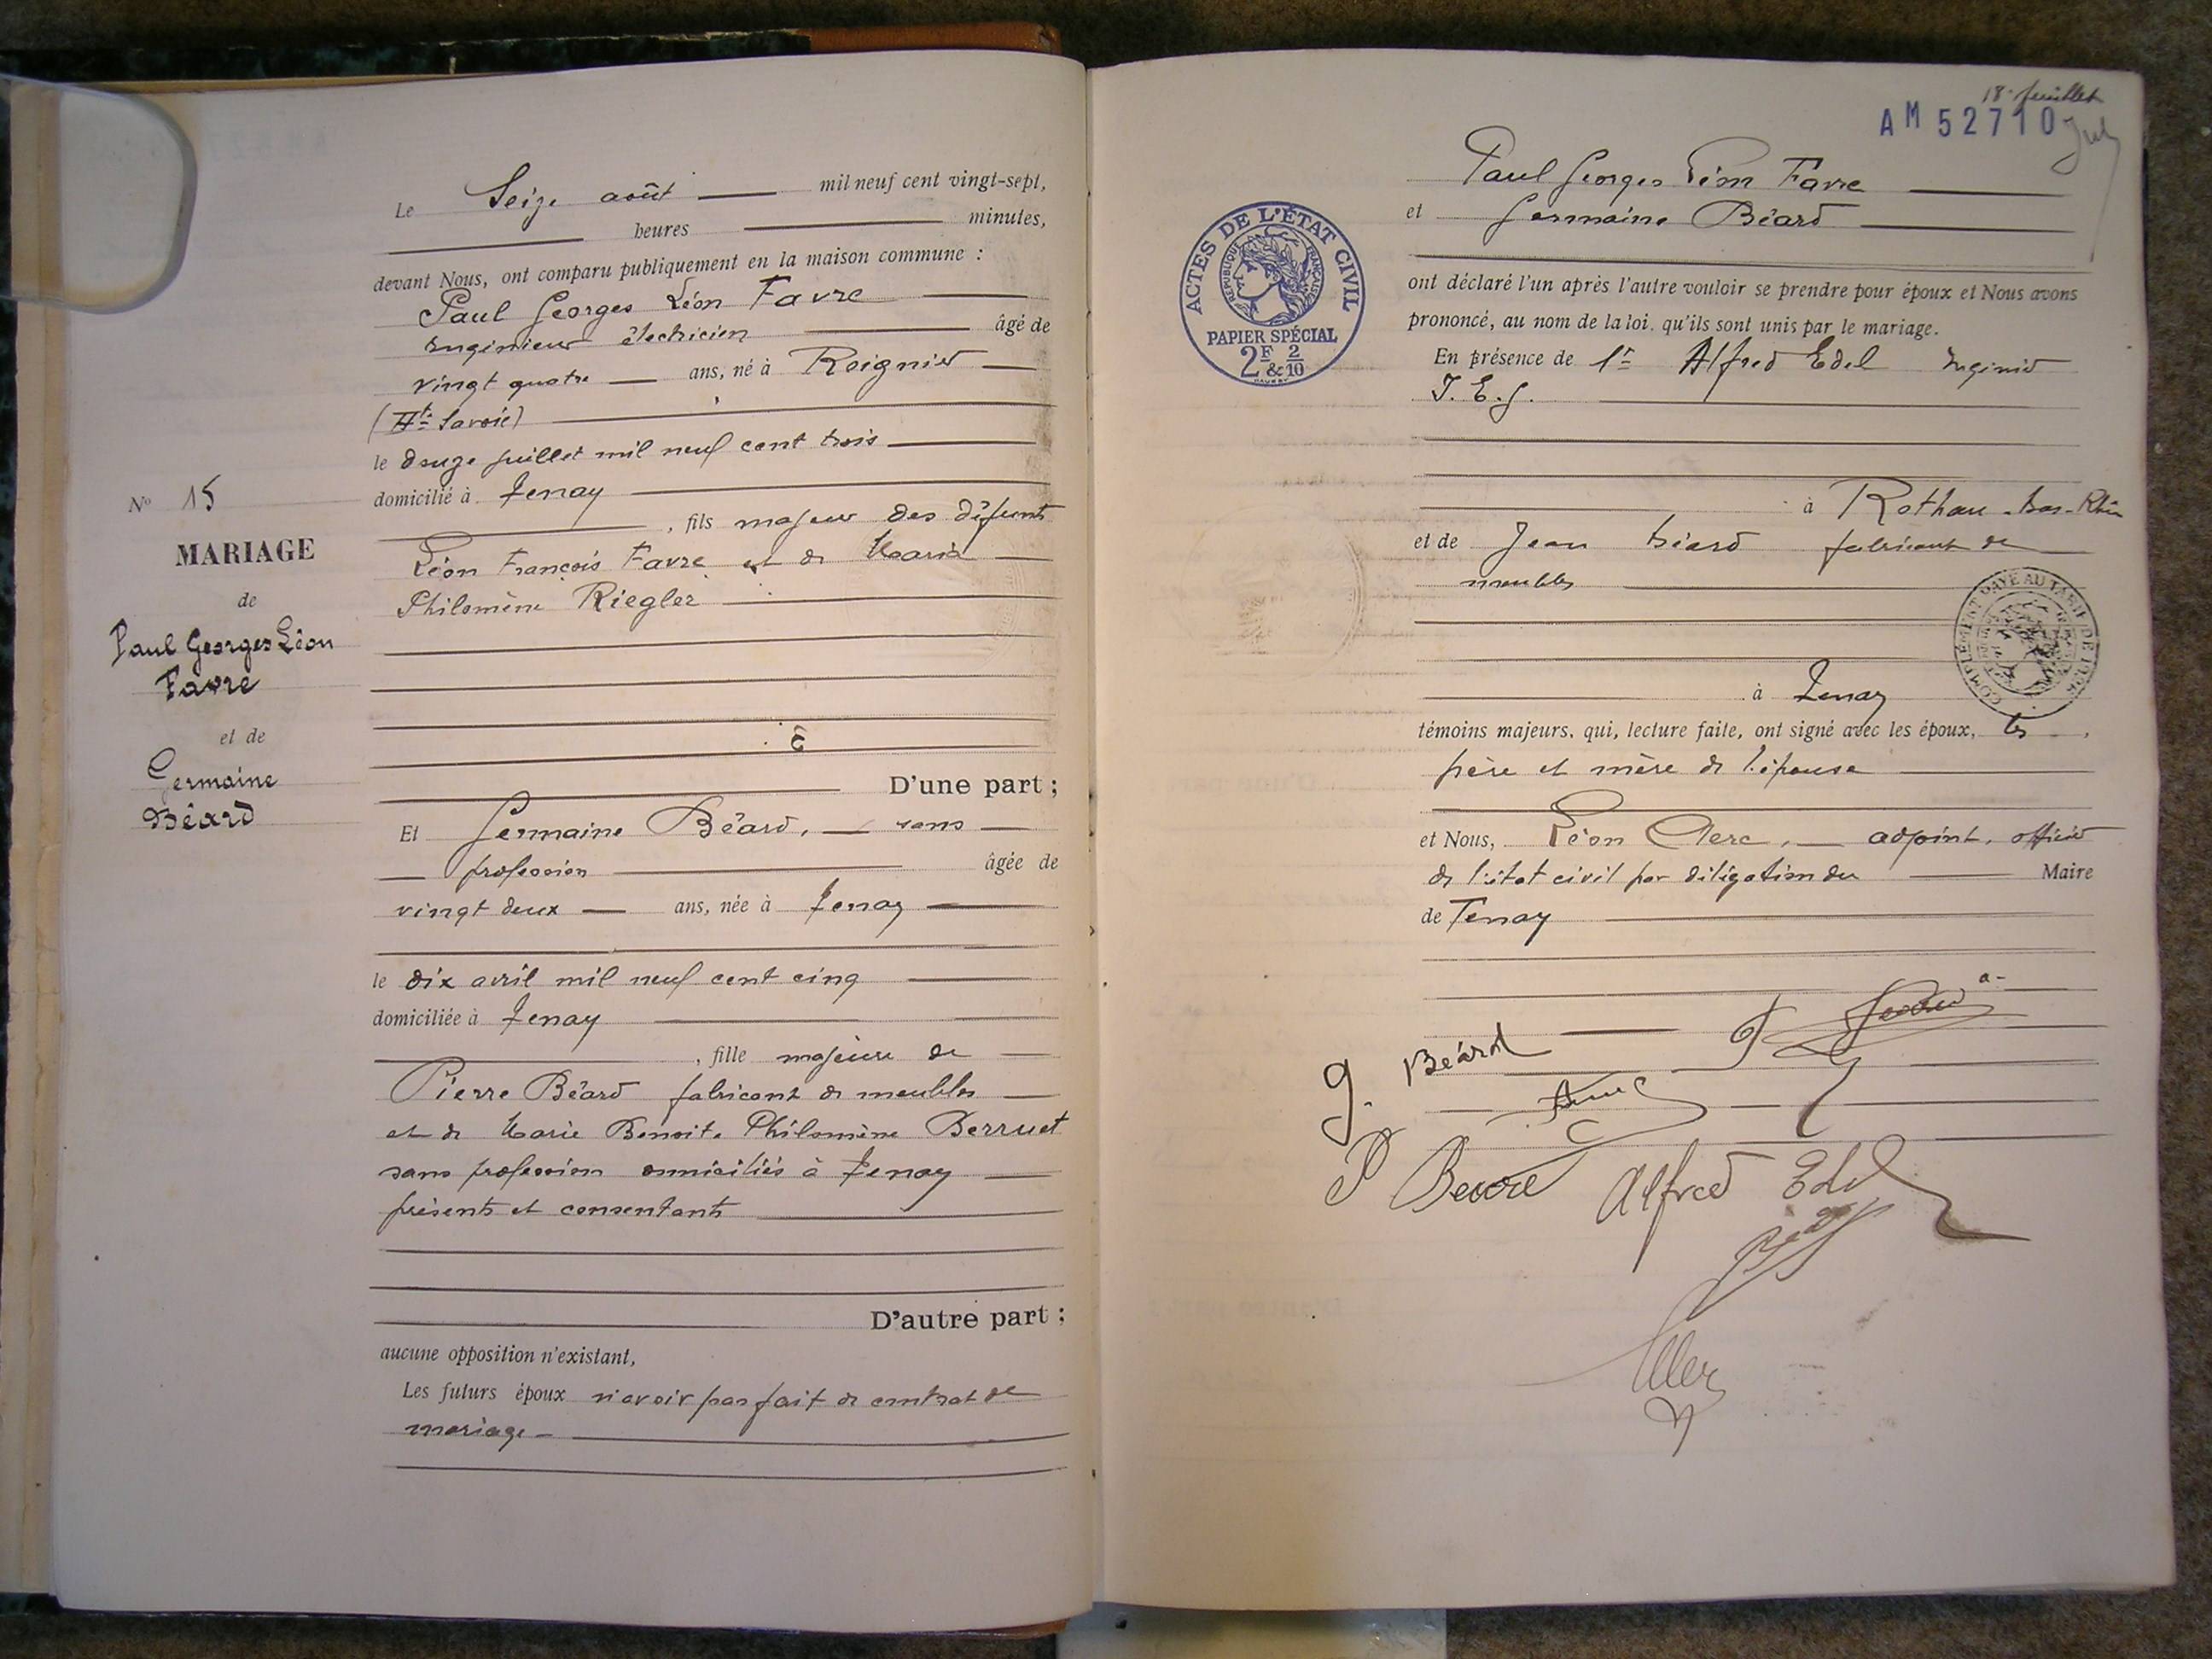 Le Seize août mil neuf cent vingt-sept,
heures minutes,
devant Nous, ont comparu publiquement en la maison commune :
Paul Georges Léon Favre
ingénieur électricien âgé de
vingt quatre ans, né à Reignier
(Hte Savoie)
le douze juillet mil neuf cent trois
domicilié à Tenay
, fils majeur des défunts
Léon François Favre et de Maria
Philomène Riegler
D'une part ;
Nº 15
MARIAGE
de
Paul Georges Léon
Favre
et de
Germaine
Béard
Et Germaine Béard, sans
profession âgée de
vingt deux ans, née à Tenay
le dix avril mil neuf cent cinq
domiciliée à Tenay
, fille majeure de
Pierre Béard fabricant de meubles
et de Marie Benoite Philomène Berruet
sans profession domiciliés à Tenay
présents et consentants
D'autre part ;
aucune opposition n'existant,
Les futurs époux n'avoir pas fait de contrat de
mariage
18e feuillet
AM 52710
Paul Georges Léon Favre
et Germaine Béard
ACTES DE L'ÉTAT CIVIL
RÉPUBLIQUE FRANÇAISE
PAPIER SPÉCIAL
2F & 2/10
ont déclaré l'un après l'autre vouloir se prendre pour époux et Nous avons
prononcé, au nom de la loi, qu'ils sont unis par le mariage.
En présence de 1r Alfred Edel
à Rothau Bas-Rhin
et de Jean Béard fabricant de
meubles
COMPLÉMENT PAYÉ AU TARIF DE
à Tenay
témoins majeurs, qui, lecture faite, ont signé avec les époux, les
père et mère de l'épouse
et Nous, Léon Clerc, adjoint, officier
de l'état civil par délégation du Maire
de Tenay
g. Béard
Alfred Edel